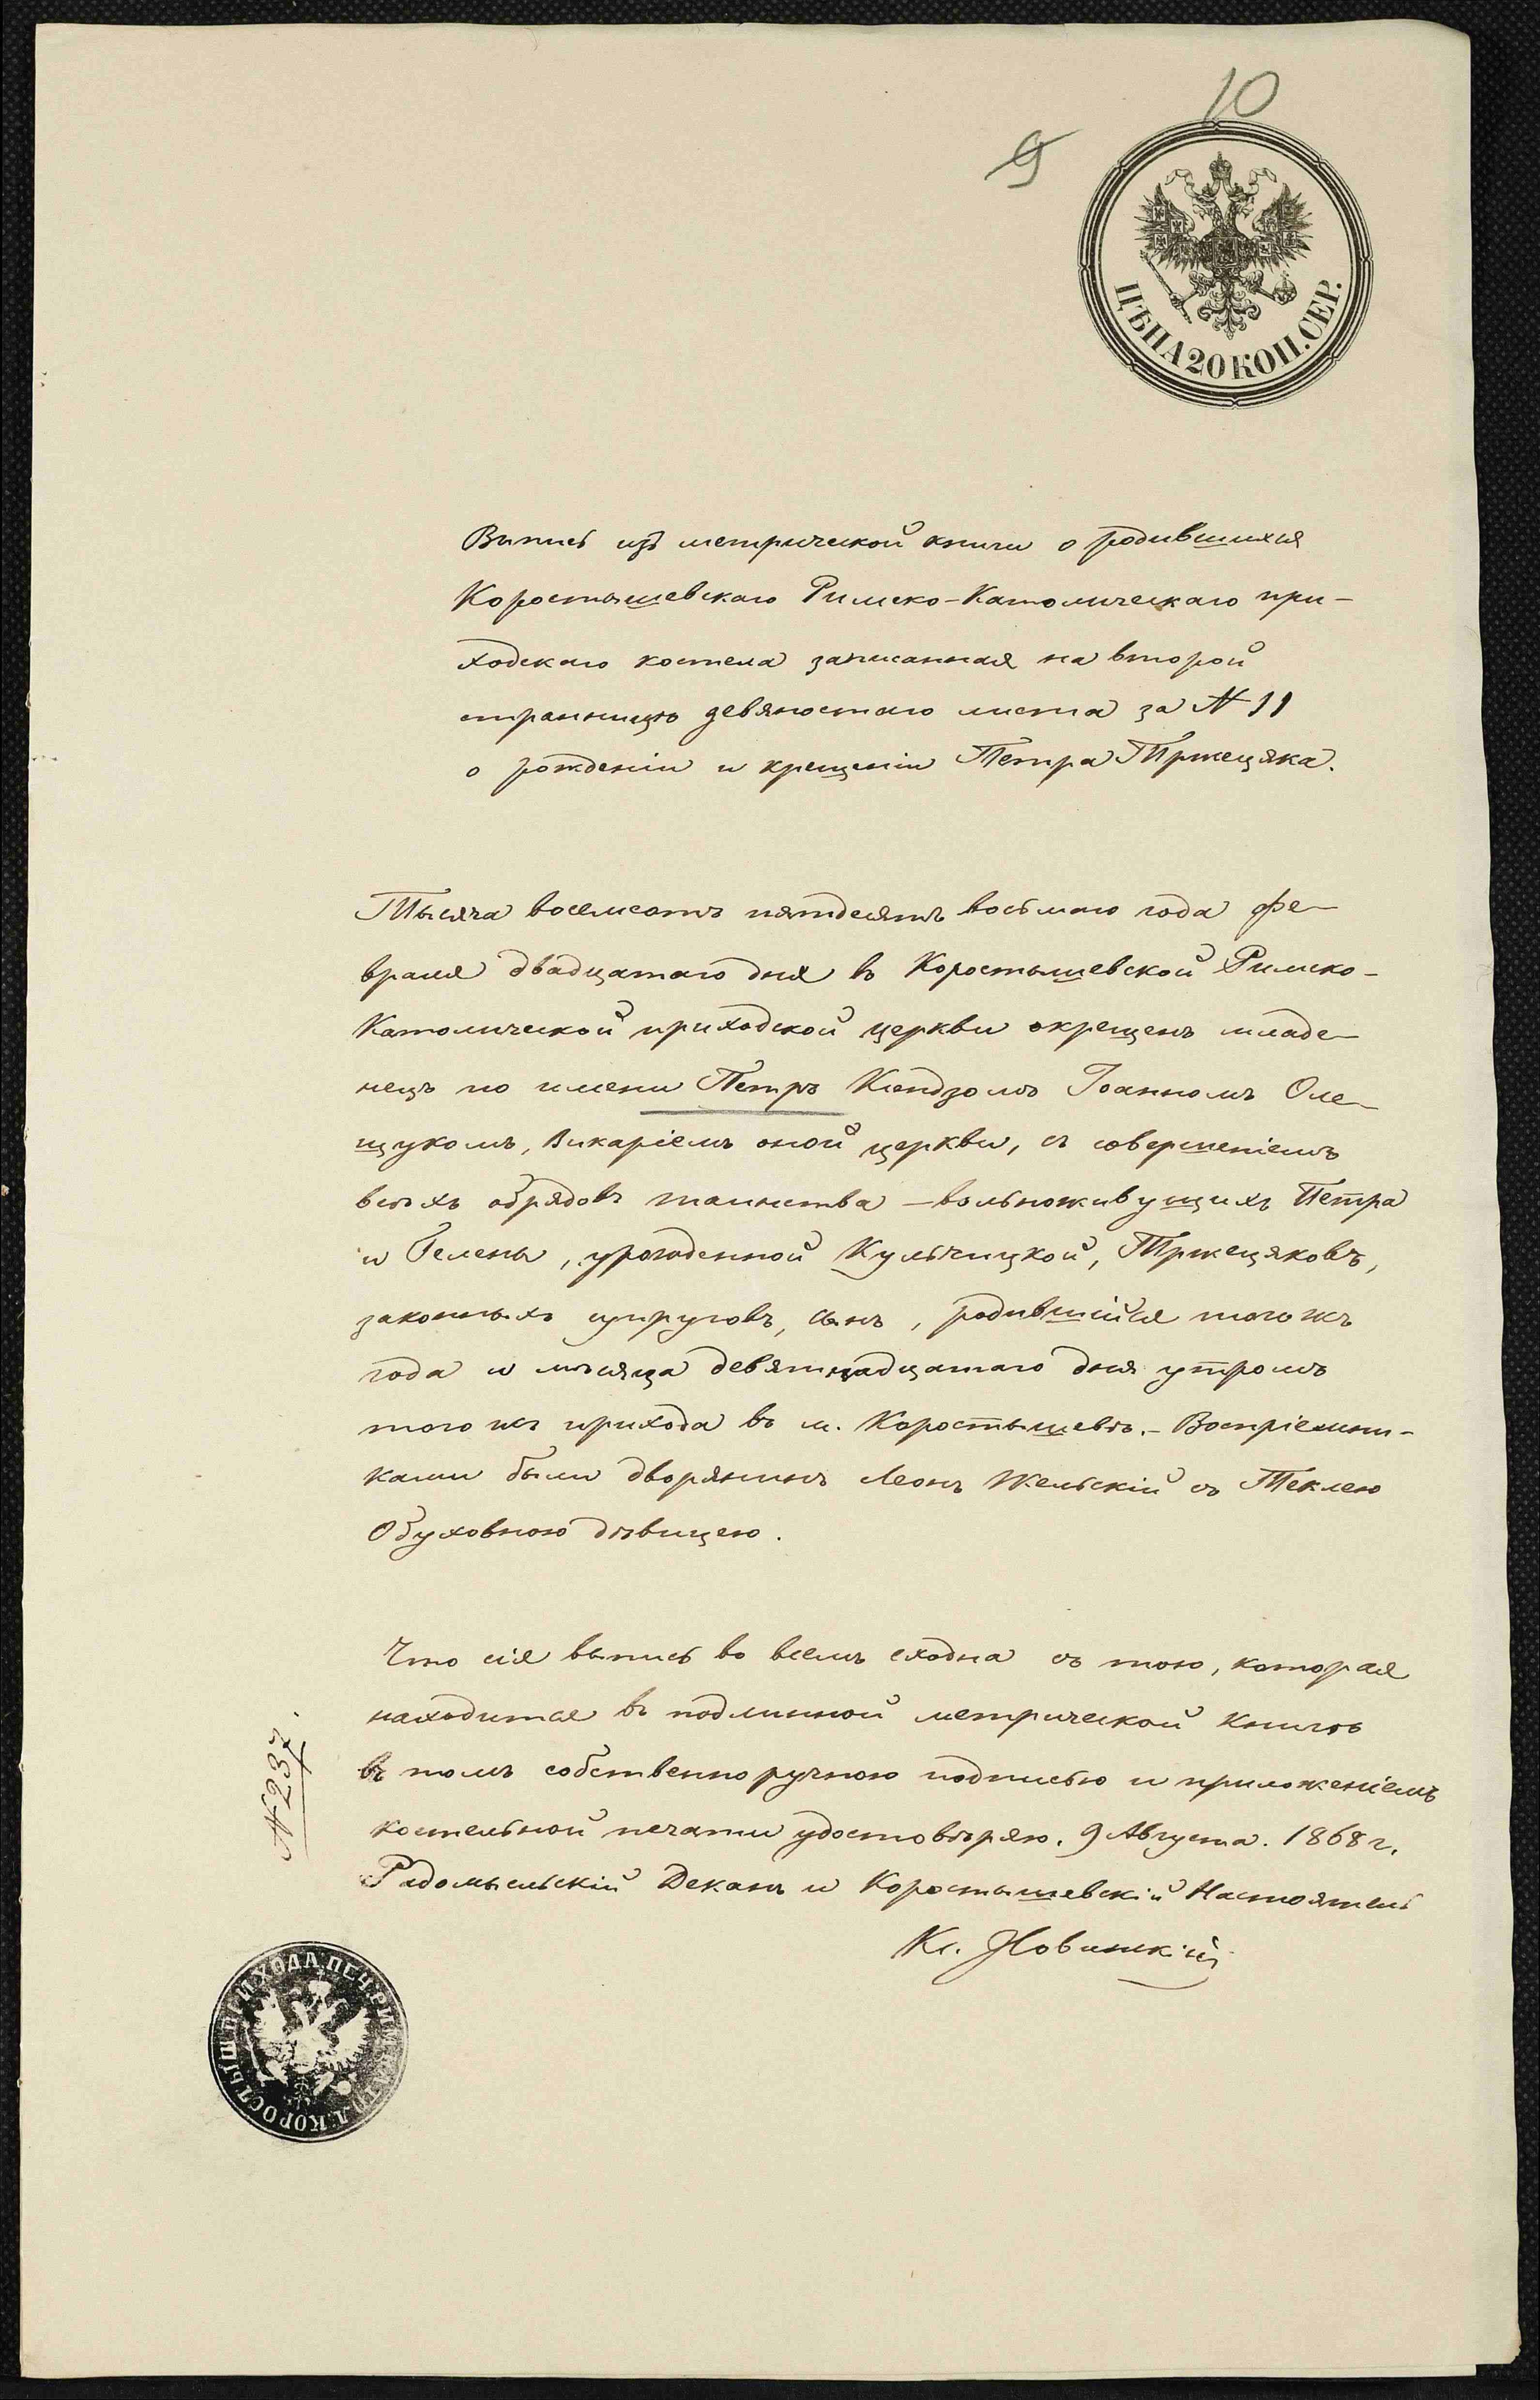 10
9
ЦѢНА 20 КОП. СЕР.
Выпись изъ метрической книги о родившихся
Коростышевскаго Римско-Католическаго при-
ходскаго костела записанная на второй
страницѣ девяностаго листа за № 11
о рожденіи и крещеніи Петра Тржецяка.
Тысяча восемсотъ пятдесятъ восьмаго года фе-
враля двадцатаго дня въ Коростышевской Римско-
Католической приходской церкви окрещенъ младе-
нецъ по имени Петръ Ксендзомъ Іоанномъ Оле-
щукомъ, Викаріемъ оной церкви, съ совершеніемъ
всѣхъ обрядовъ таинства – вольноживущихъ Петра
и Гелены, урожденной Кульчицкой, Тржецяковъ,
законныхъ супруговъ, сынъ, родившійся тогожъ
года и мѣсяца девятнадцатаго дня утромъ
того жъ прихода въ м. Коростышевѣ. – Воспріемни-
ками были дворянинъ Леонъ Жельскій съ Теклею
Обуховною дѣвицею.
Что сія выпись во всемъ сходна съ тою, которая
находится въ подлинной метрической книгѣ
въ томъ собственноручною подписью и приложеніемъ
костельной печати удостовѣряю. 9 Августа. 1868 г.
Радомысльскій Деканъ и Коростышевскій Настоятель
Кс. Новицкій
№ 237.
ПЕЧ. РИМ. КАТОЛ. КОРОСТЫШ. ПРИХОДА